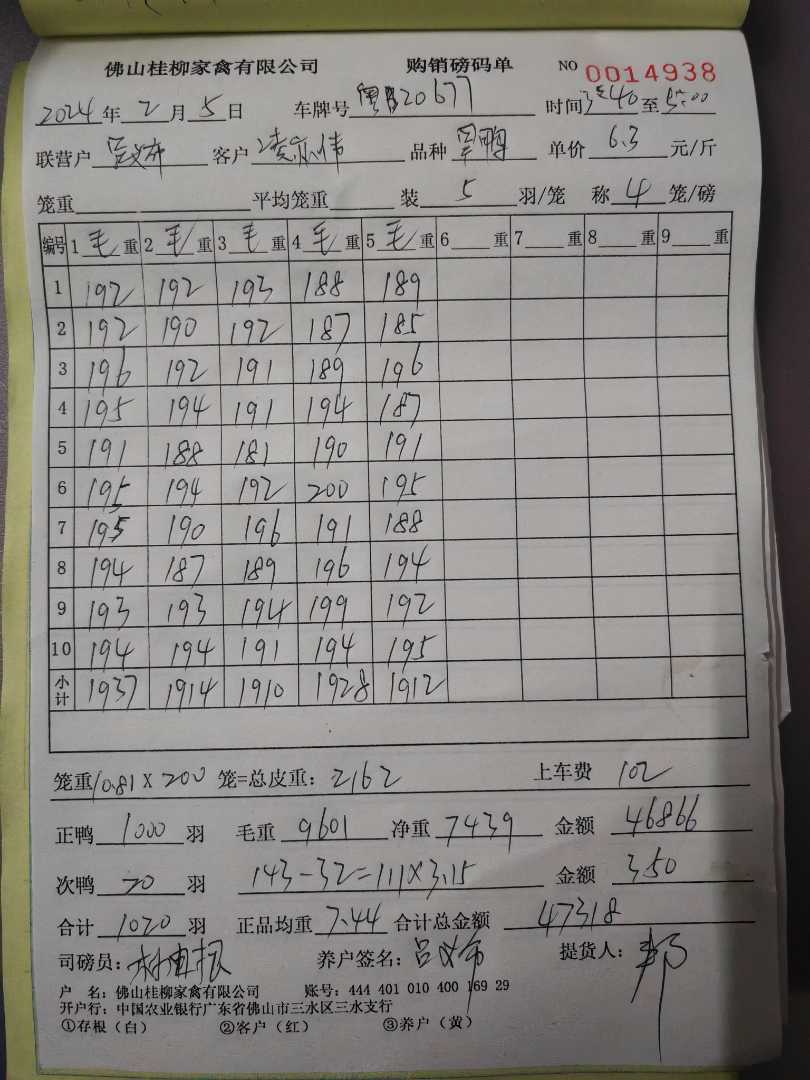 佛山桂柳家禽有限公司 购销磅码单 NO 0014938
2024年2月5日 车牌号 20677 时间3:40至5:00
联营户 客户 凌 伟 品种 单价 6.3 元/斤
笼重 平均笼重 装 5 羽/笼 称 4 笼/磅
编号 1 毛 重 2 毛 重 3 毛 重 4 毛 重 5 毛 重 6 重 7 重 8 重 9 重
1 192 192 193 188 189
2 192 190 192 187 185
3 196 192 191 189 196
4 195 194 191 194 187
5 191 188 181 190 191
6 195 194 192 200 195
7 195 190 196 191 188
8 194 187 189 196 194
9 193 193 194 199 192
10 194 194 191 194 195
小计 1937 1914 1910 1928 1912
笼重10.81 X 200 笼=总皮重：2162 上车费 102
正鸭 1000 羽 毛重 9601 净重 7439 金额 46866
次鸭 20 羽 143-32=111X3.15 金额 350
合计 1020 羽 正品均重 7.44 合计总金额 47318
司磅员： 养户签名： 提货人：
户 名：佛山桂柳家禽有限公司 账号：444 401 010 400 169 29
开户行：中国农业银行广东省佛山市三水区三水支行
①存根（白） ②客户（红） ③养户（黄）